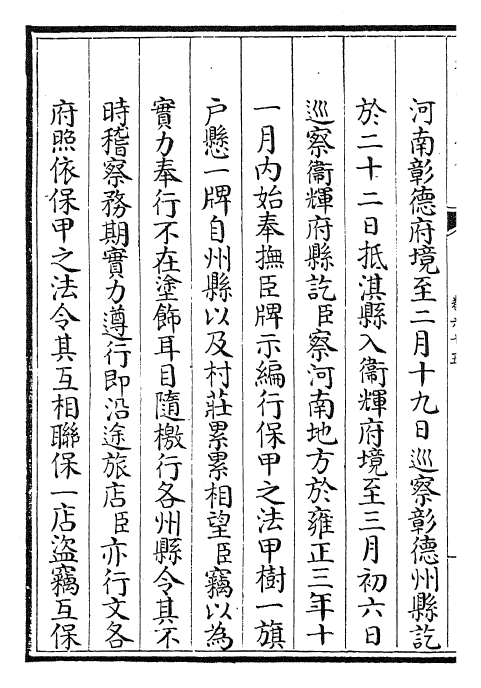 河南彰德府境至二月十九日巡察彰德州縣訖
於二十二日抵淇縣入衞輝府境至三月初六日
巡察衞輝府縣訖臣察河南地方於雍正三年十
一月內始奉撫臣牌示編行保甲之法甲樹一旗
户懸一牌自州縣以及村莊累累相望臣竊以為
實力奉行不在塗飾耳目隨檄行各州縣令其不
時稽察務期實力遵行即沿途旅店臣亦行文各
府照依保甲之法令其互相聯保一店盜竊互保